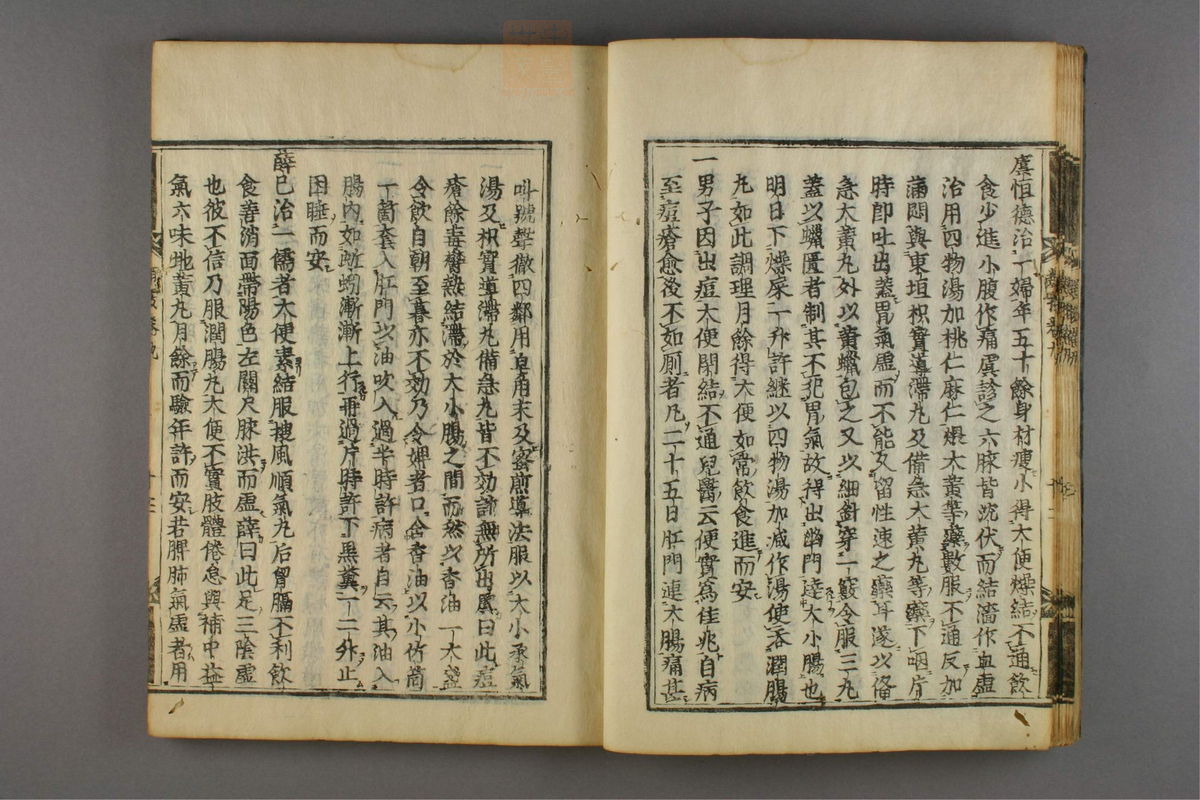 虞恒德治一婦年五十餘身材瘦小得大便燥結不通飲
食少進小腹作痛虞診之六脉皆沈伏而結濇作血虛
治用四物湯加桃仁麻仁煨大黃等藥數服不通反加
滿悶與東垣枳實導滯丸及備急大黃丸等藥下咽片
時卽吐出蓋胃氣虛而不能久留性速之藥耳遂以備
急大黃丸外以黃蠟包之又以細針穿一竅令服三丸
蓋以蠟匱者制其不犯胃氣故得出幽門達大小腸也
明日下燥屎一升許繼以四物湯加減作湯使吞潤腸
丸如此調理月餘得大便如常飲食進而安
一男子因出痘大便閉結不通兒醫云便實爲佳兆自病
至痘瘡愈後不如厠者凡二十五日肛門連大腸痛甚
叫號聲徹四鄰用皂角末及蜜煎導法服以大小承氣
湯及枳實導滯丸備急丸皆不効計無所出虞曰此痘
瘡餘毒鬱熱結滯於大小腸之間而然以香油一大盞
令飲自朝至暮亦不効乃令婢者口含香油以小竹筒
一箇套入肛門以油吹入過半時許病者自云其油入
腸內如蚯蚓漸漸上行再過片時許下黑糞一二升止
困睡而安
薛己治一儒者大便素結服搜風順氣丸后胷膈不利飲
食善消面帶陽色左關尺脉洪而虛薛曰此足三陰虛
也彼不信乃服潤腸丸大便不實肢體倦怠與補中益
氣六味地黃丸月餘而驗年許而安若脾肺氣虛者用